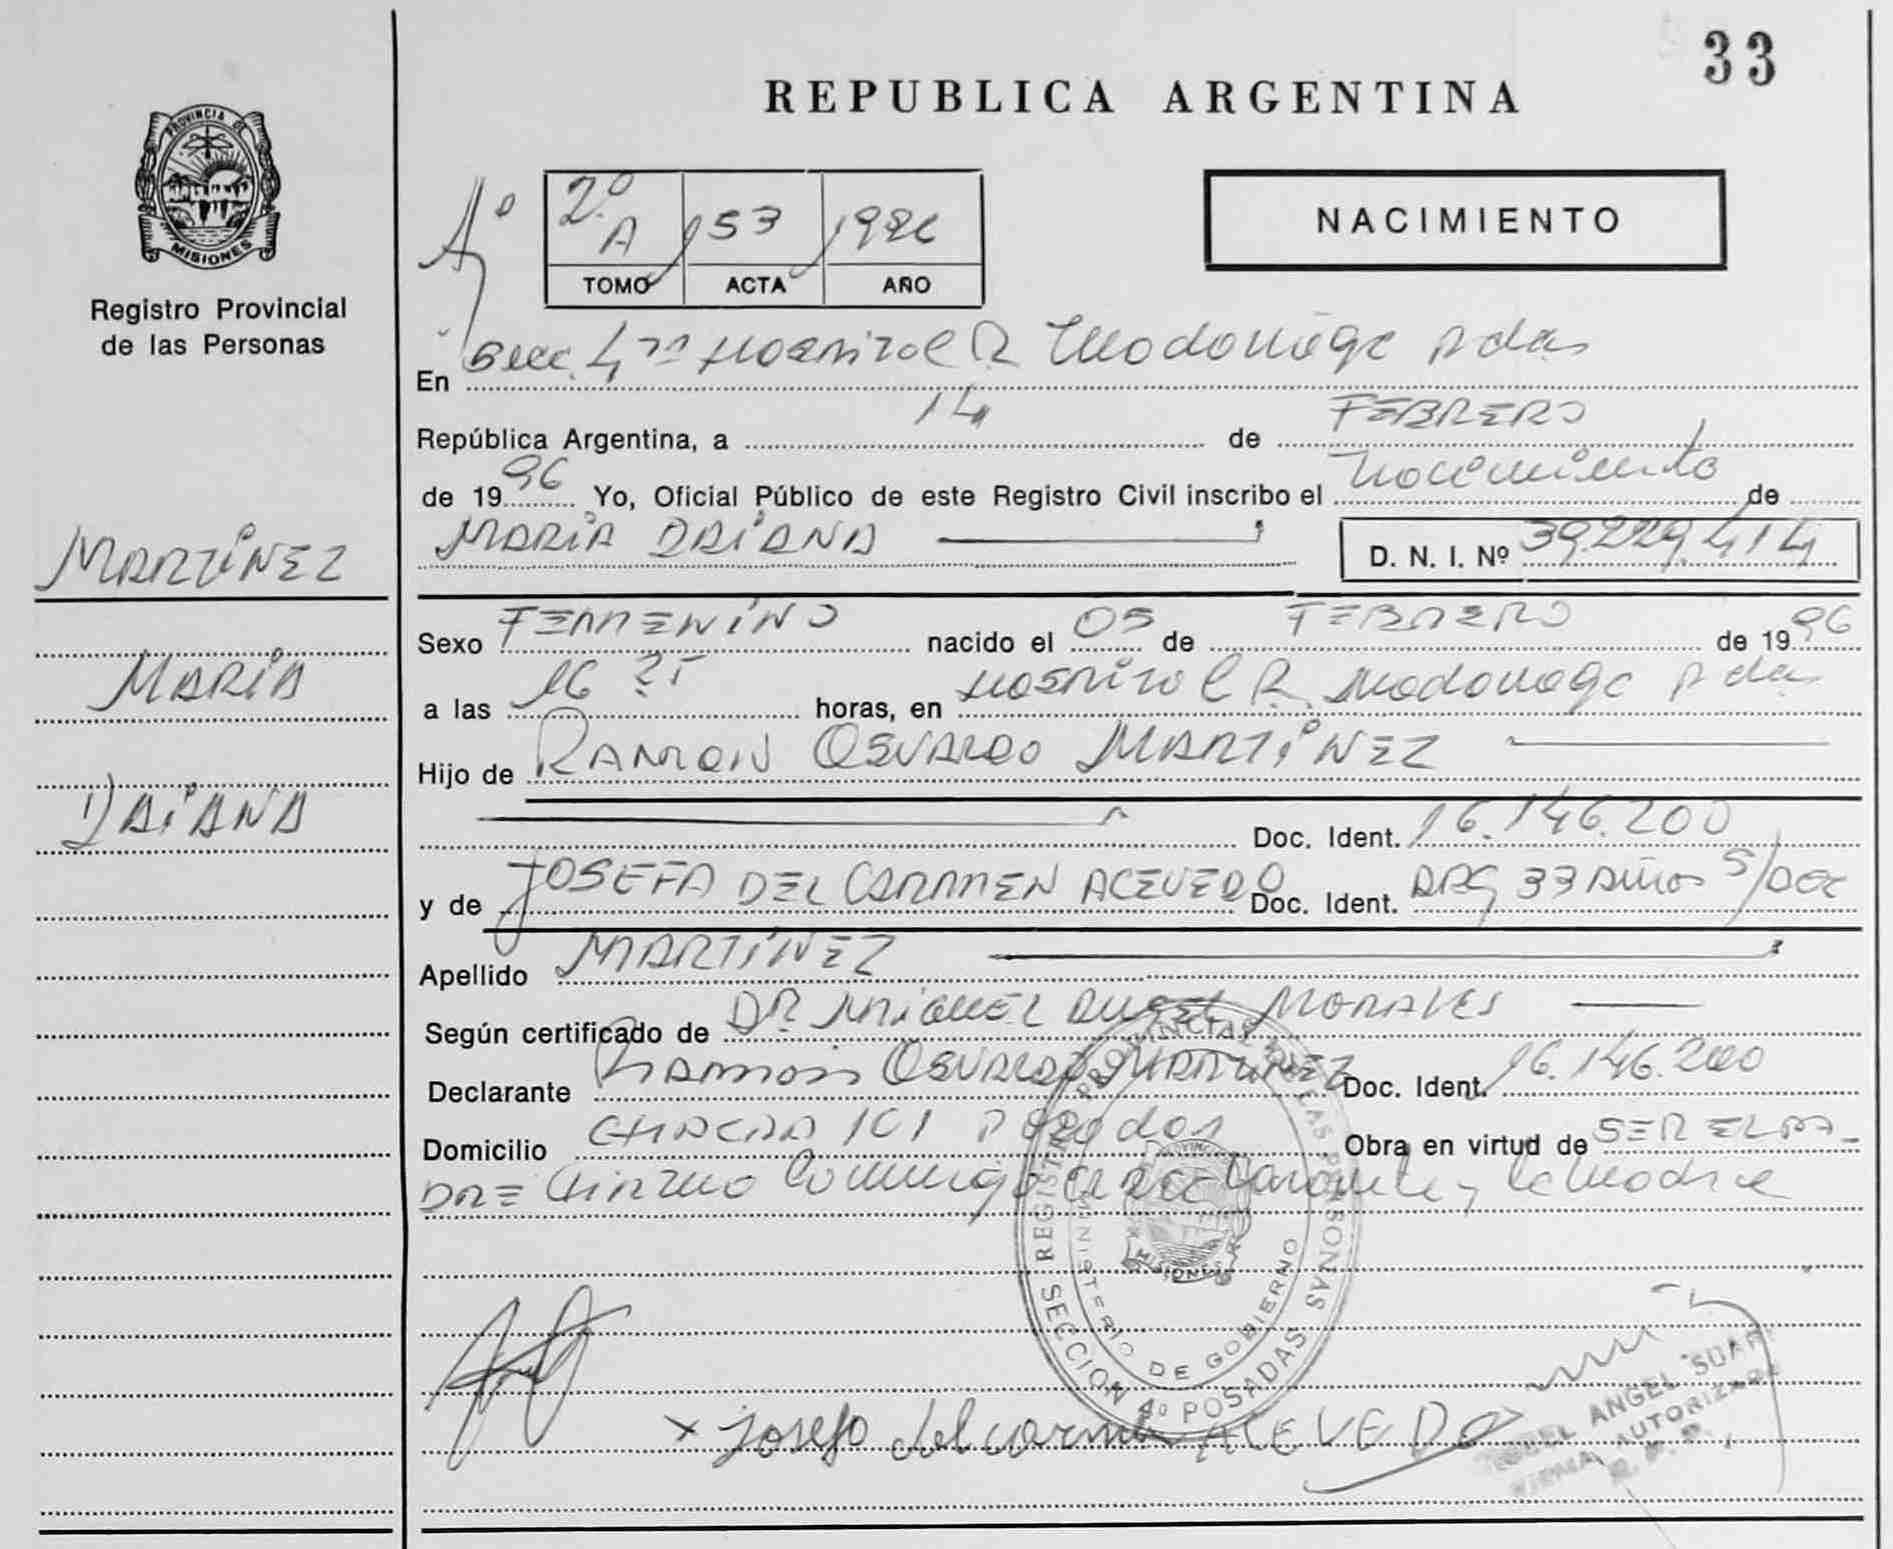 33
REPUBLICA ARGENTINA
PROVINCIA DE
MISIONES
Registro Provincial
de las Personas
Aº
2º A 153 1996
TOMO ACTA AÑO
NACIMIENTO
En Secc. 4ta Hospital R Madariaga Pdas
República Argentina, a 14 de FEBRERO
de 1996 Yo, Oficial Público de este Registro Civil inscribo el nacimiento de
MARIA DAIANA D. N. I. Nº 39.229.414
MARTINEZ
MARIA
DAIANA
Sexo FEMENINO nacido el 05 de FEBRERO de 1996
a las 16 25 horas, en Hospital R. Madariaga Pdas
Hijo de RAMON OSVALDO MARTINEZ
Doc. Ident. 16.146.200
y de JOSEFA DEL CARMEN ACEVEDO Doc. Ident. ARG 33 AÑOS S/DOC
Apellido MARTINEZ
Según certificado de DR MIGUEL ANGEL MORALES
Declarante RAMON OSVALDO MARTINEZ Doc. Ident. 16.146.200
Domicilio CHACRA 101 Posadas Obra en virtud de SER EL PA-
DRE Firman Conmigo el declarante y la madre
REGISTRO PROVINCIAL DE LAS PERSONAS
MINISTERIO DE GOBIERNO
MISIONES
SECCION 4º POSADAS
x Josefa del carmen ACEVEDO
ANGEL
FIRMA AUTORIZADA
R. P. P.